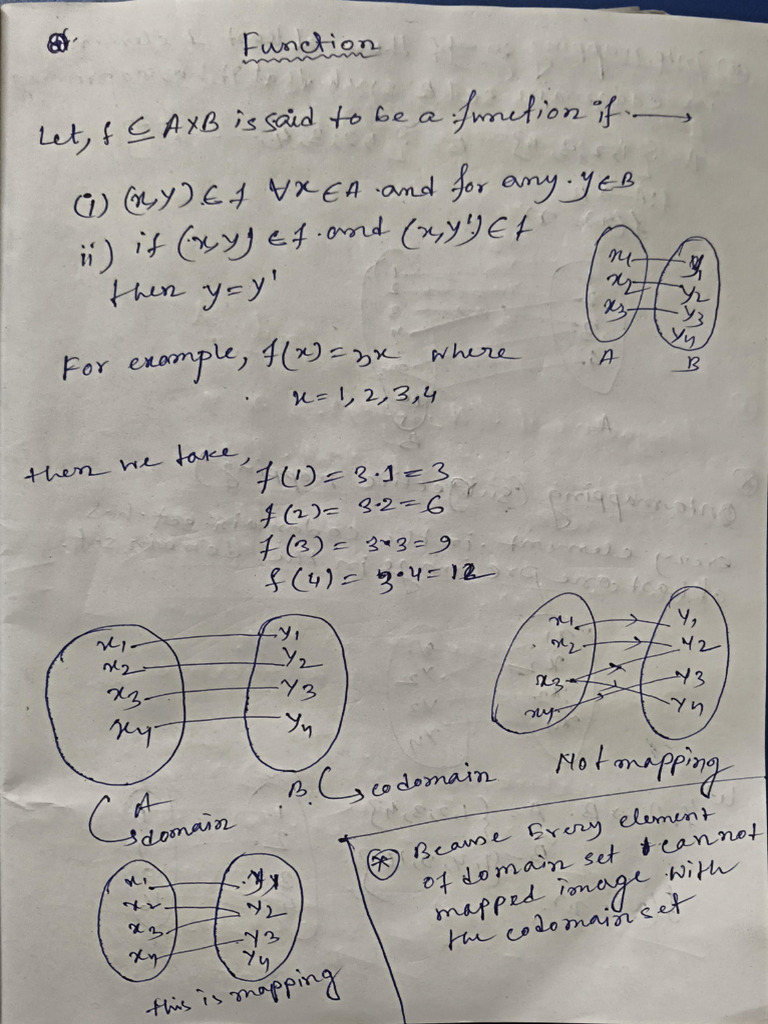 Function
Let, f ⊆ A×B is said to be a function if →
(i) (x,y) ∈ f ∀x ∈ A and for any y ∈ B
ii) if (x,y) ∈ f and (x,y') ∈ f
then y = y'
x1 y1
x2 y2
x3 y3
y4
A B
For example, f(x) = 3x where
x = 1, 2, 3, 4
then we take,
f(1) = 3·1 = 3
f(2) = 3·2 = 6
f(3) = 3×3 = 9
f(4) = 3·4 = 12
x1 y1
x2 y2
x3 y3
x4 y4
A
domain
B. codomain
x1 y1
x2 y2
x3 y3
x4 y4
Not mapping
x1 y1
x2 y2
x3 y3
x4 y4
this is mapping
Beause Every element
of domain set cannot
mapped image with
the codomain set